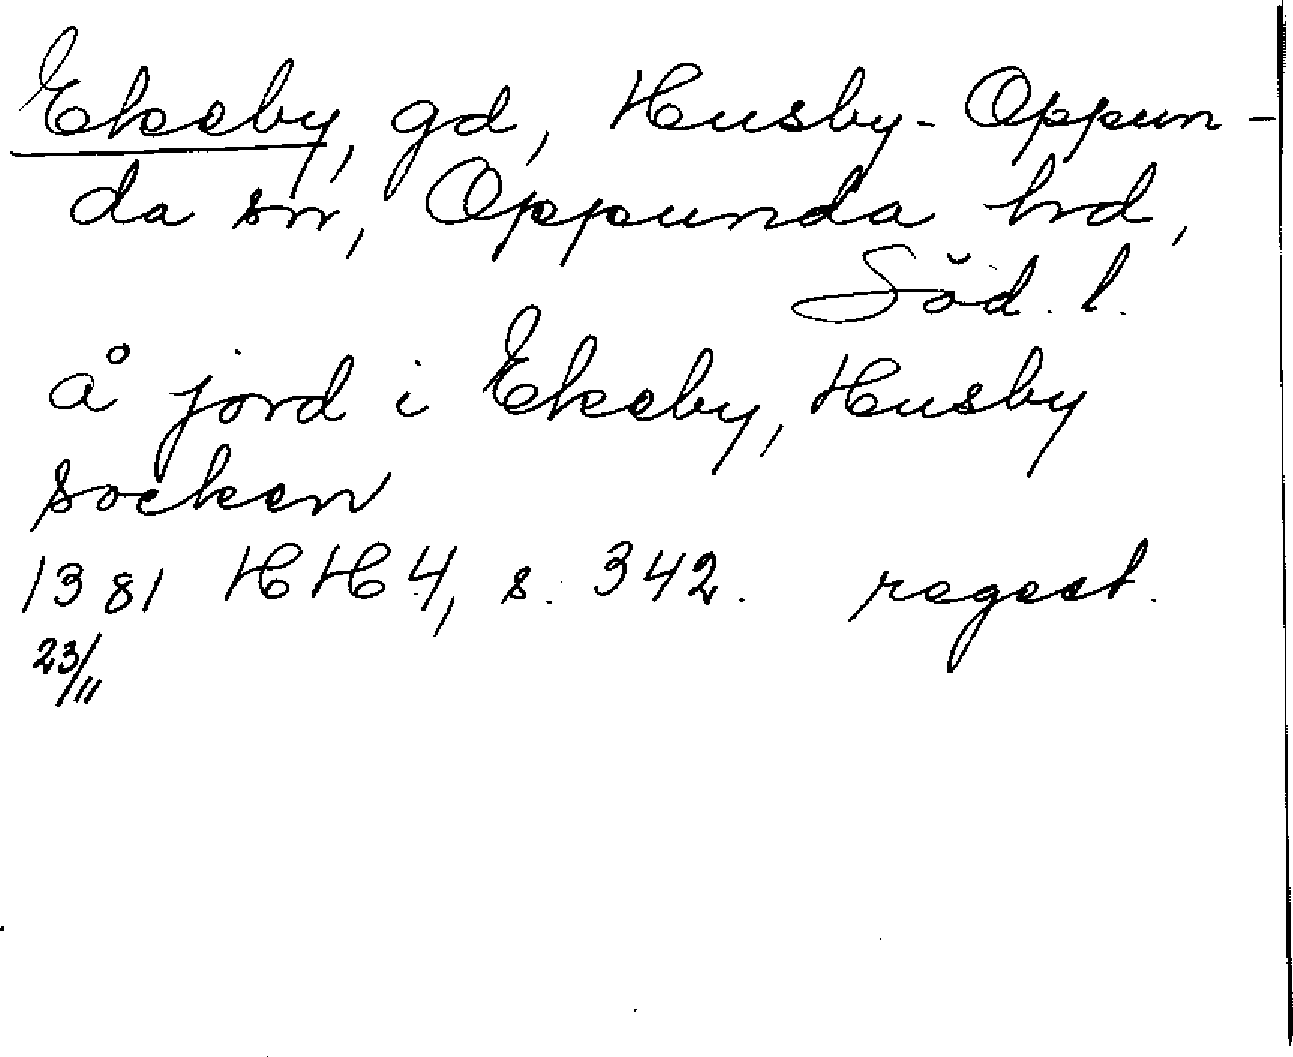 Ekeby, gd, Husby-Oppun-
da sn, Oppunda hrd,
Söd. l.
å jord i Ekeby, Husby
socken
1381 HH 4, s. 342. regest.
23/11